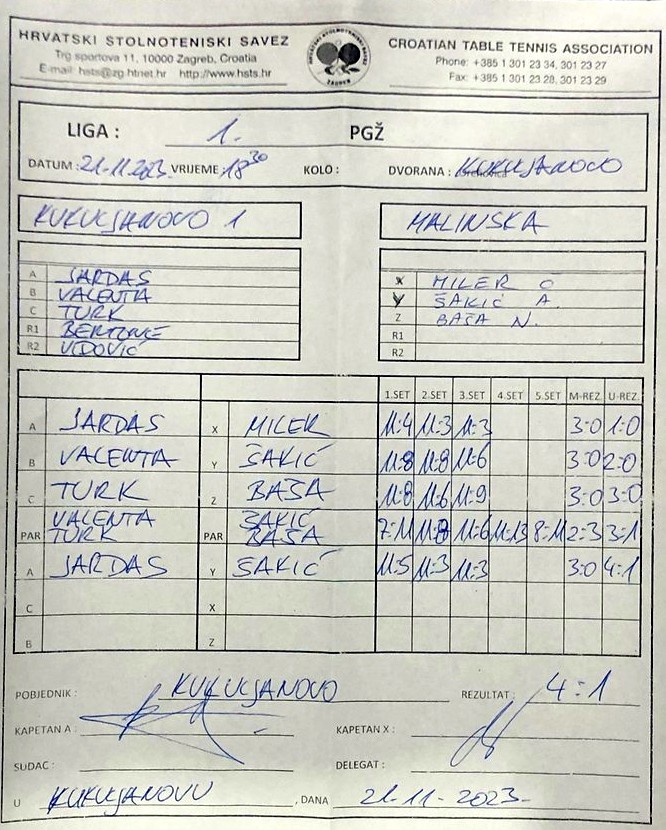 HRVATSKI STOLNOTENISKI SAVEZ
Trg sportova 11, 10000 Zagreb, Croatia
E-mail: hsts@zg.htnet.hr http://www.hsts.hr
HRVATSKI STOLNOTENISKI SAVEZ
ZAGREB
CROATIAN TABLE TENNIS ASSOCIATION
Phone: +385 1 301 23 34, 301 23 27
Fax: +385 1 301 23 28, 301 23 29
LIGA : 1. PGŽ
DATUM : 21.11.2023. VRIJEME : 18 30 KOLO : DVORANA : KUKULJANOVO
KUKULJANOVO 1 MALINSKA
A JARDAS
B VALENTA
C TURK
R1 BERTONE
R2 VIDOVIĆ
X MILER O
Y ŠAKIĆ A.
Z BAŠA N.
R1
R2
1.SET 2.SET 3.SET 4.SET 5.SET M-REZ. U-REZ.
A JARDAS X MILER 11:4 11:3 11:3 3:0 1:0
B VALENTA Y ŠAKIĆ 11:8 11:8 11:6 3:0 2:0
C TURK Z BAŠA 11:8 11:6 11:9 3:0 3:0
VALENTA ŠAKIĆ
PAR TURK PAR BAŠA 7:11 11:8 11:6 11:13 8:11 2:3 3:1
A JARDAS Y ŠAKIĆ 11:5 11:3 11:3 3:0 4:1
C X
B Z
POBJEDNIK : KUKULJANOVO REZULTAT : 4:1
KAPETAN A : KAPETAN X :
SUDAC : DELEGAT :
U KUKULJANOVU , DANA 21.11.2023.